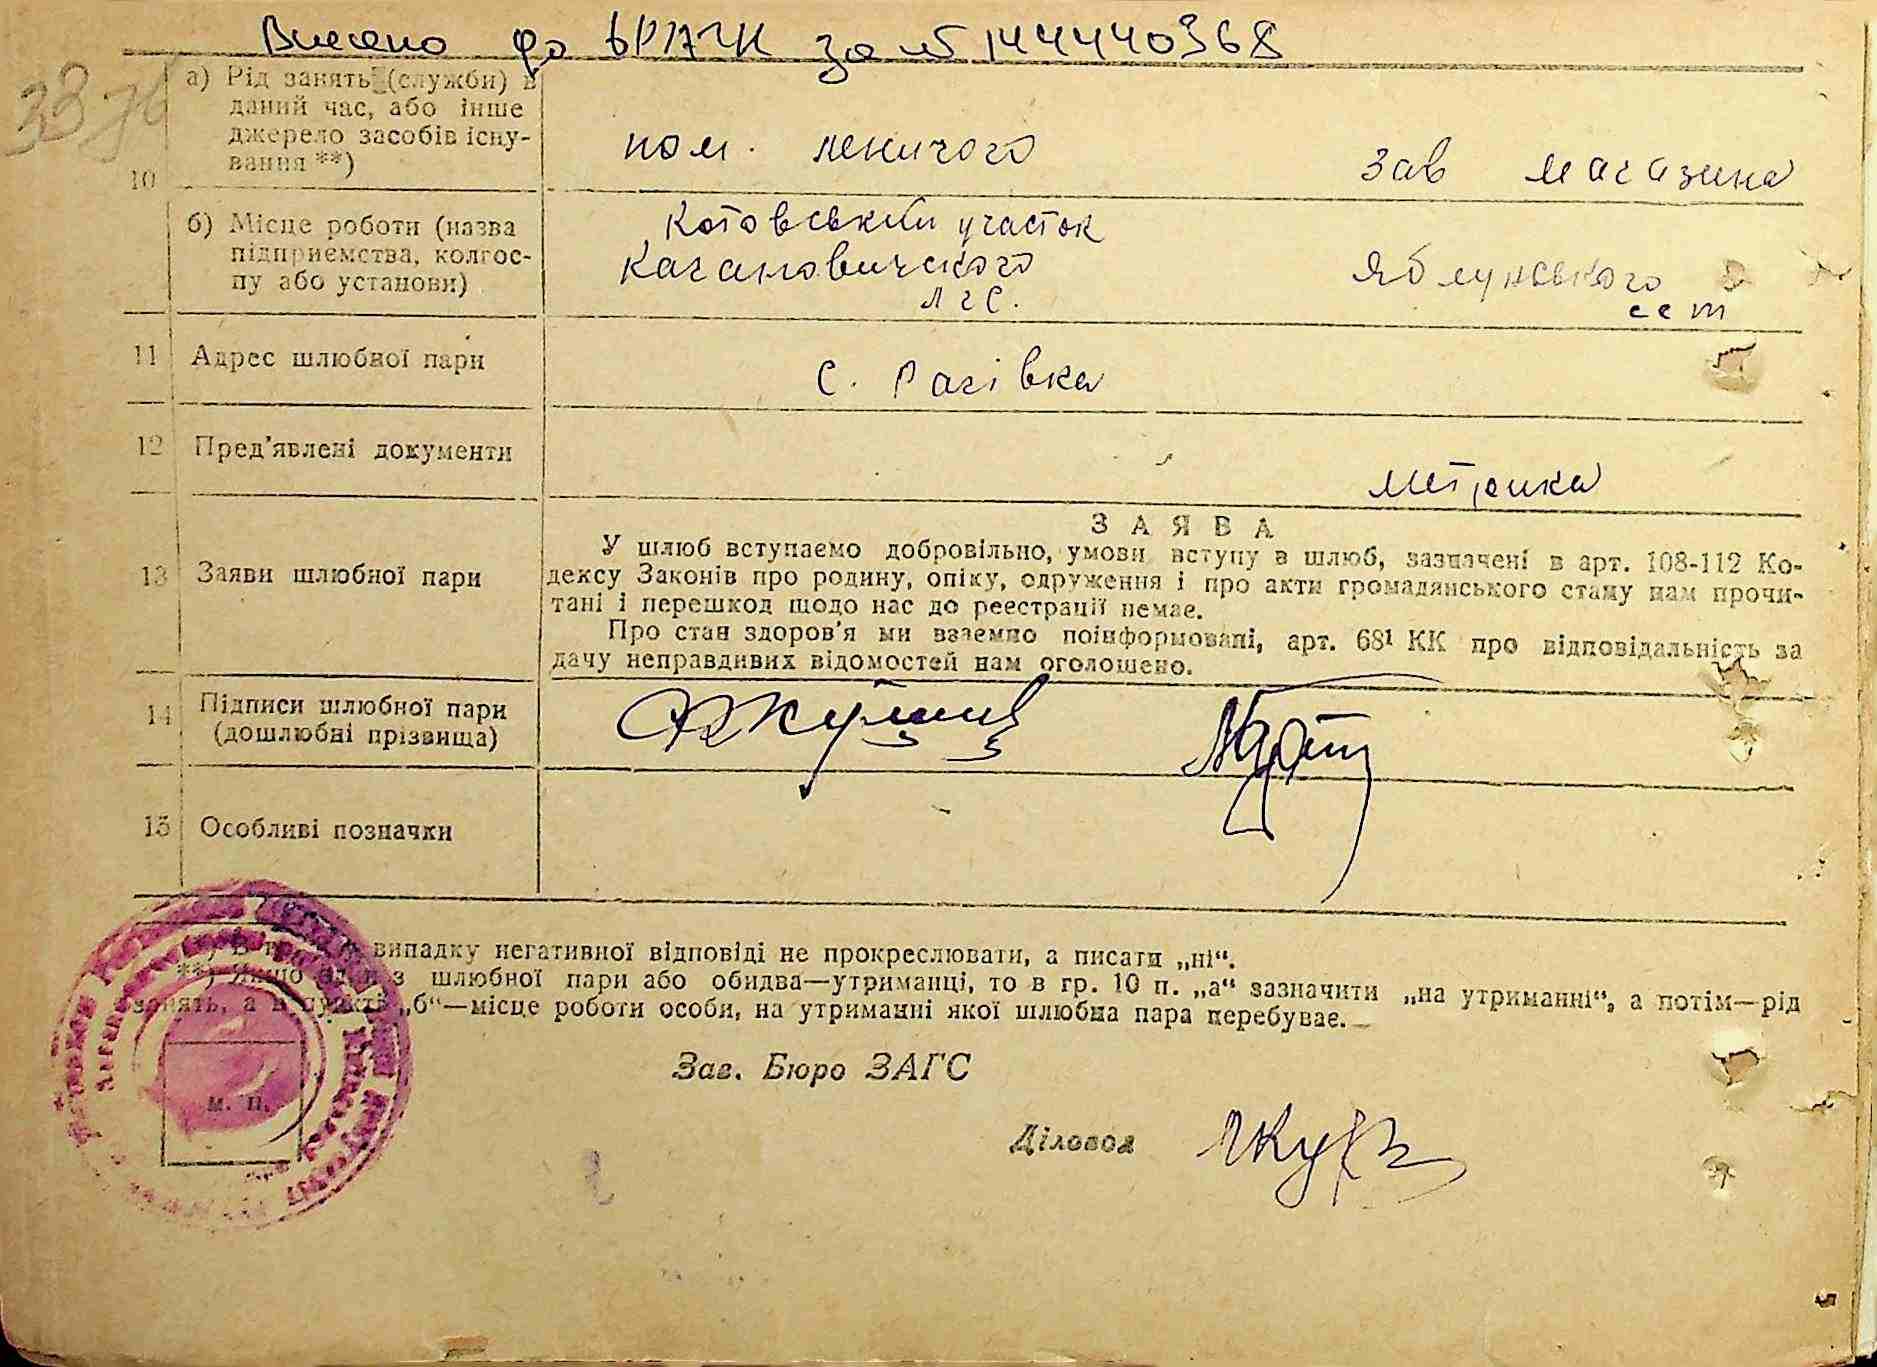 Внесено до ВРАЧК за № 144440368
а) Рід занять (служби) в
даний час, або інше
джерело засобів існу-
вання **)
10
пом. лісничого
Зав магазина
б) Місце роботи (назва
підприємства, колгос-
пу або установи)
Котовський участок
Кагановичского
ЛГС.
Яблунського
ССТ
11 Адрес шлюбної пари
с. Рагівка
12 Пред'явлені документи
метрика
ЗАЯВА
13 Заяви шлюбної пари
У шлюб вступаємо добровільно, умови вступу в шлюб, зазначені в арт. 108-112 Ко-
дексу Законів про родину, опіку, одруження і про акти громадянського стану нам прочи-
тані і перешкод щодо нас до реєстрації немає.
Про стан здоров'я ми взаємно поінформовані, арт. 68¹ КК про відповідальність за
дачу неправдивих відомостей нам оголошено.
14 Підписи шлюбної пари
(дошлюбні прізвища)
15 Особливі позначки
випадку негативної відповіді не прокреслювати, а писати „ні“.
**) Якщо один з шлюбної пари або обидва—утриманці, то в гр. 10 п. „а“ зазначити „на утриманні“, а потім—рід
занять, а в пункті „б“—місце роботи особи, на утриманні якої шлюбна пара перебуває.
Зав. Бюро ЗАГС
м. п.
Діловод